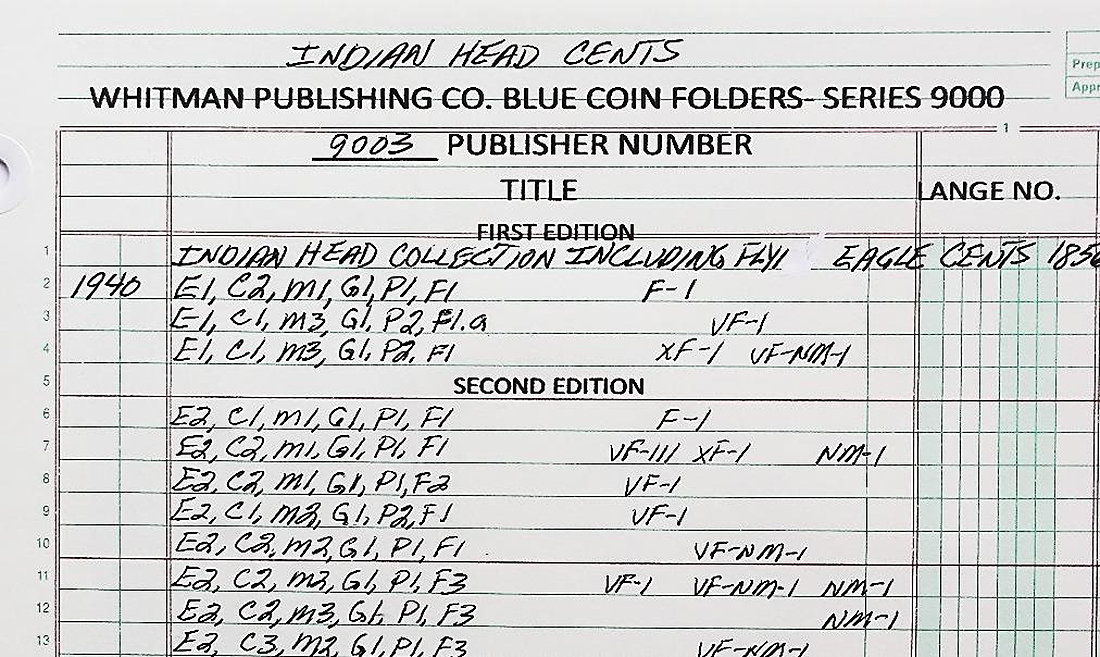 INDIAN HEAD CENTS
Prep
WHITMAN PUBLISHING CO. BLUE COIN FOLDERS- SERIES 9000
Appr
1
9003 PUBLISHER NUMBER
TITLE LANGE NO.
FIRST EDITION
1 INDIAN HEAD COLLECTION INCLUDING FLYI EAGLE CENTS 1856
2 1940 E1, C2, M1, G1, P1, F1 F-1
3 E1, C1, M3, G1, P2, F1.a VF-1
4 E1, C1, M3, G1, P2, F1 XF-1 VF-NM-1
5 SECOND EDITION
6 E2, C1, M1, G1, P1, F1 F-1
7 E2, C2, M1, G1, P1, F1 VF-III XF-1 NM-1
8 E2, C2, M1, G1, P1, F2 VF-1
9 E2, C1, M2, G1, P2, F1 VF-1
10 E2, C2, M2, G1, P1, F1 VF-NM-1
11 E2, C2, M2, G1, P1, F3 VF-1 VF-NM-1 NM-1
12 E2, C2, M3, G1, P1, F3 NM-1
13 E2, C3, M2, G1, P1, F3 VF-NM-1